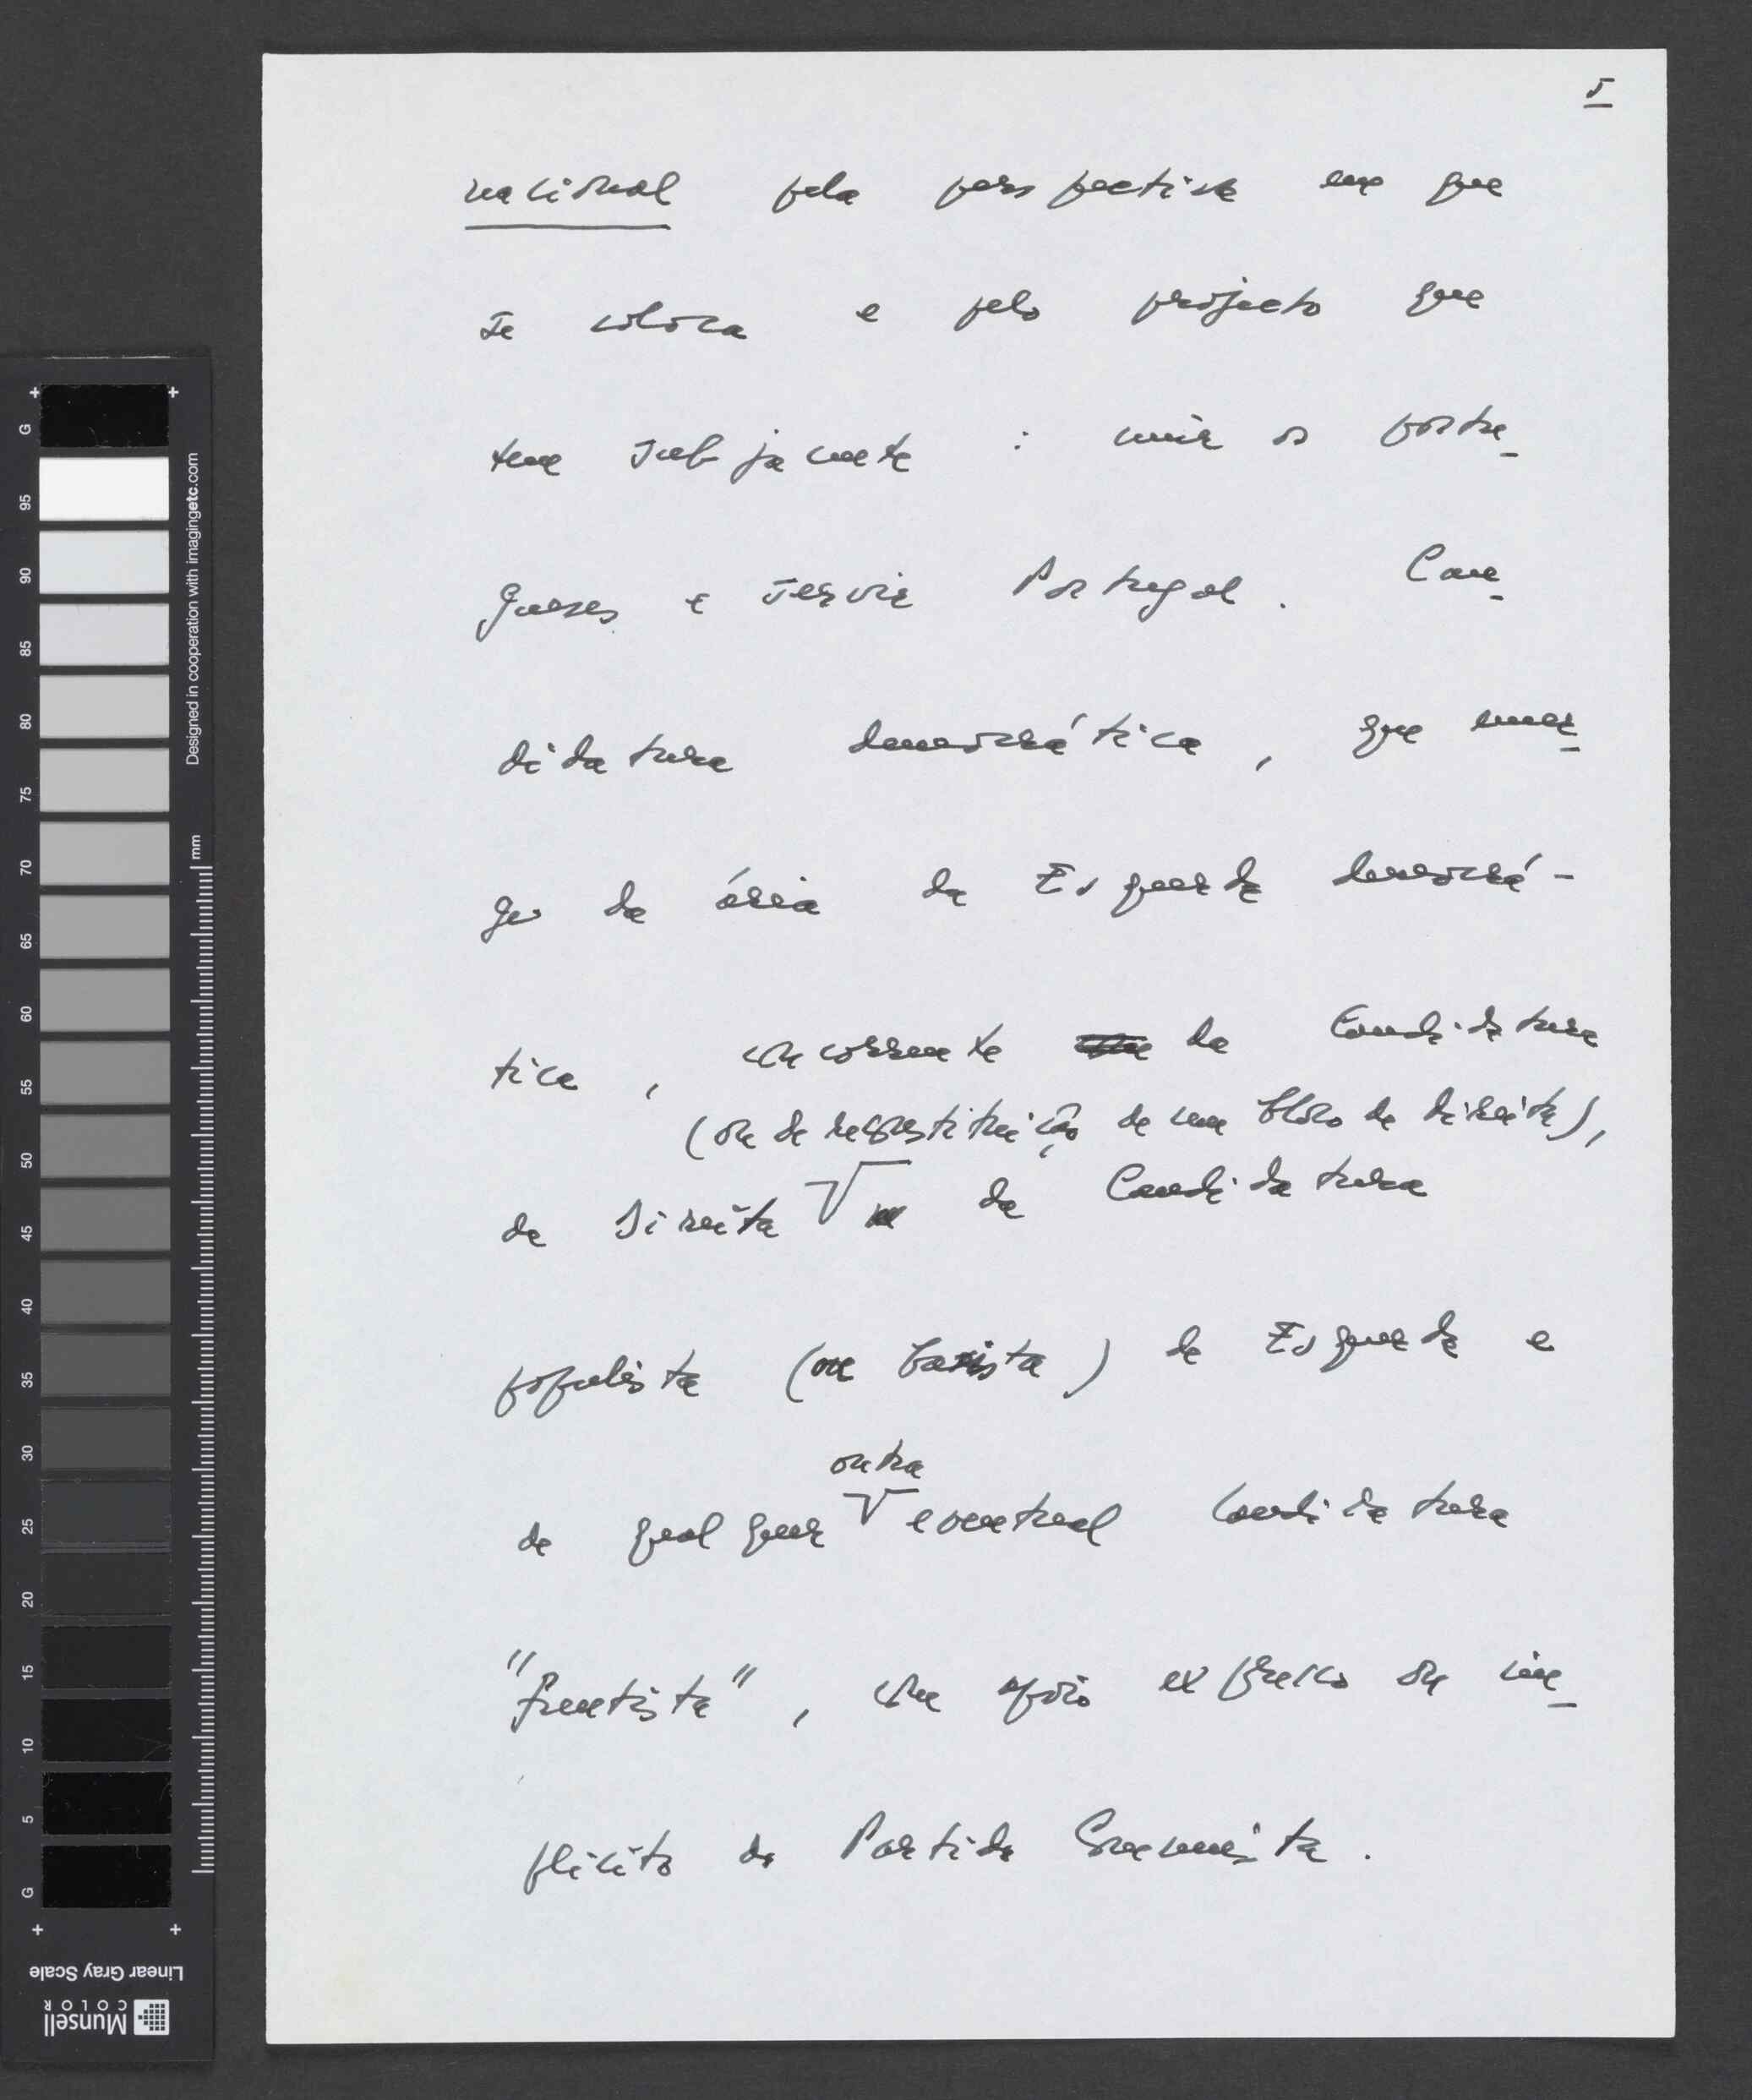 5
nacional pela perspectiva em que
se coloca e pelo projecto que
tem subjacente : unir os portu-
gueses e servir Portugal. Can-
didatura democrática, que emer-
ge da área da Esquerda democrá-
tica, concorrente da Candidatura
(ou de reconstituição de um bloco de direita),
da Direita da Candidatura
populista (ou basista) de Esquerda e
outra
de qualquer eventual Candidatura
"frentista", com apoio expresso ou im-
plícito do Partido Comunista.
G
95
90
85
80
75
70
65
60
55
50
45
40
35
30
25
20
15
10
5
G
Designed in cooperation with imagingetc.com
mm
Linear Gray Scale
Munsell
COLOR